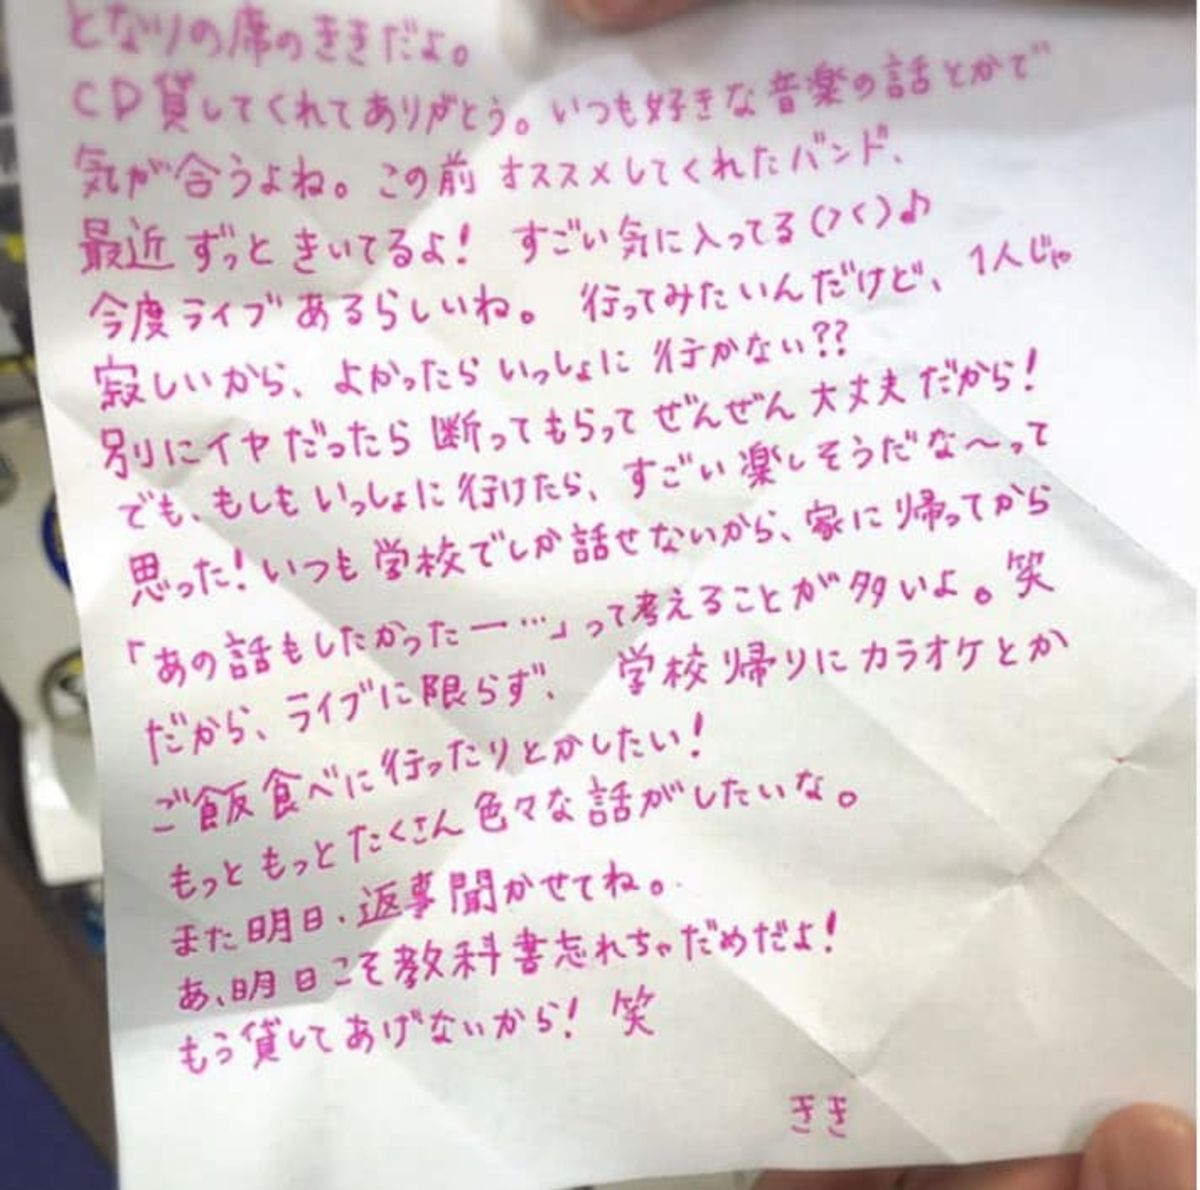 となりの席のききだよ。
CD貸してくれてありがとう。いつも好きな音楽の話とかで
気が合うよね。この前オススメしてくれたバンド、
最近ずっときいてるよ! すごい気に入ってる(>く)♪
今度ライブあるらしいね。 行ってみたいんだけど、1人じゃ
寂しいから、よかったらいっしょに行かない??
別にイヤだったら断ってもらってぜんぜん大丈夫だから!
でも、もしもいっしょに行けたら、すごい楽しそうだな〜って
思った!いつも学校でしか話せないから、家に帰ってから
「あの話もしたかったー…」って考えることが多いよ。笑
だから、ライブに限らず、 学校帰りにカラオケとか
ご飯食べに行ったりとかしたい!
もっともっとたくさん色々な話がしたいな。
また明日、返事聞かせてね。
あ、明日こそ教科書忘れちゃだめだよ!
もう貸してあげないから! 笑
きき